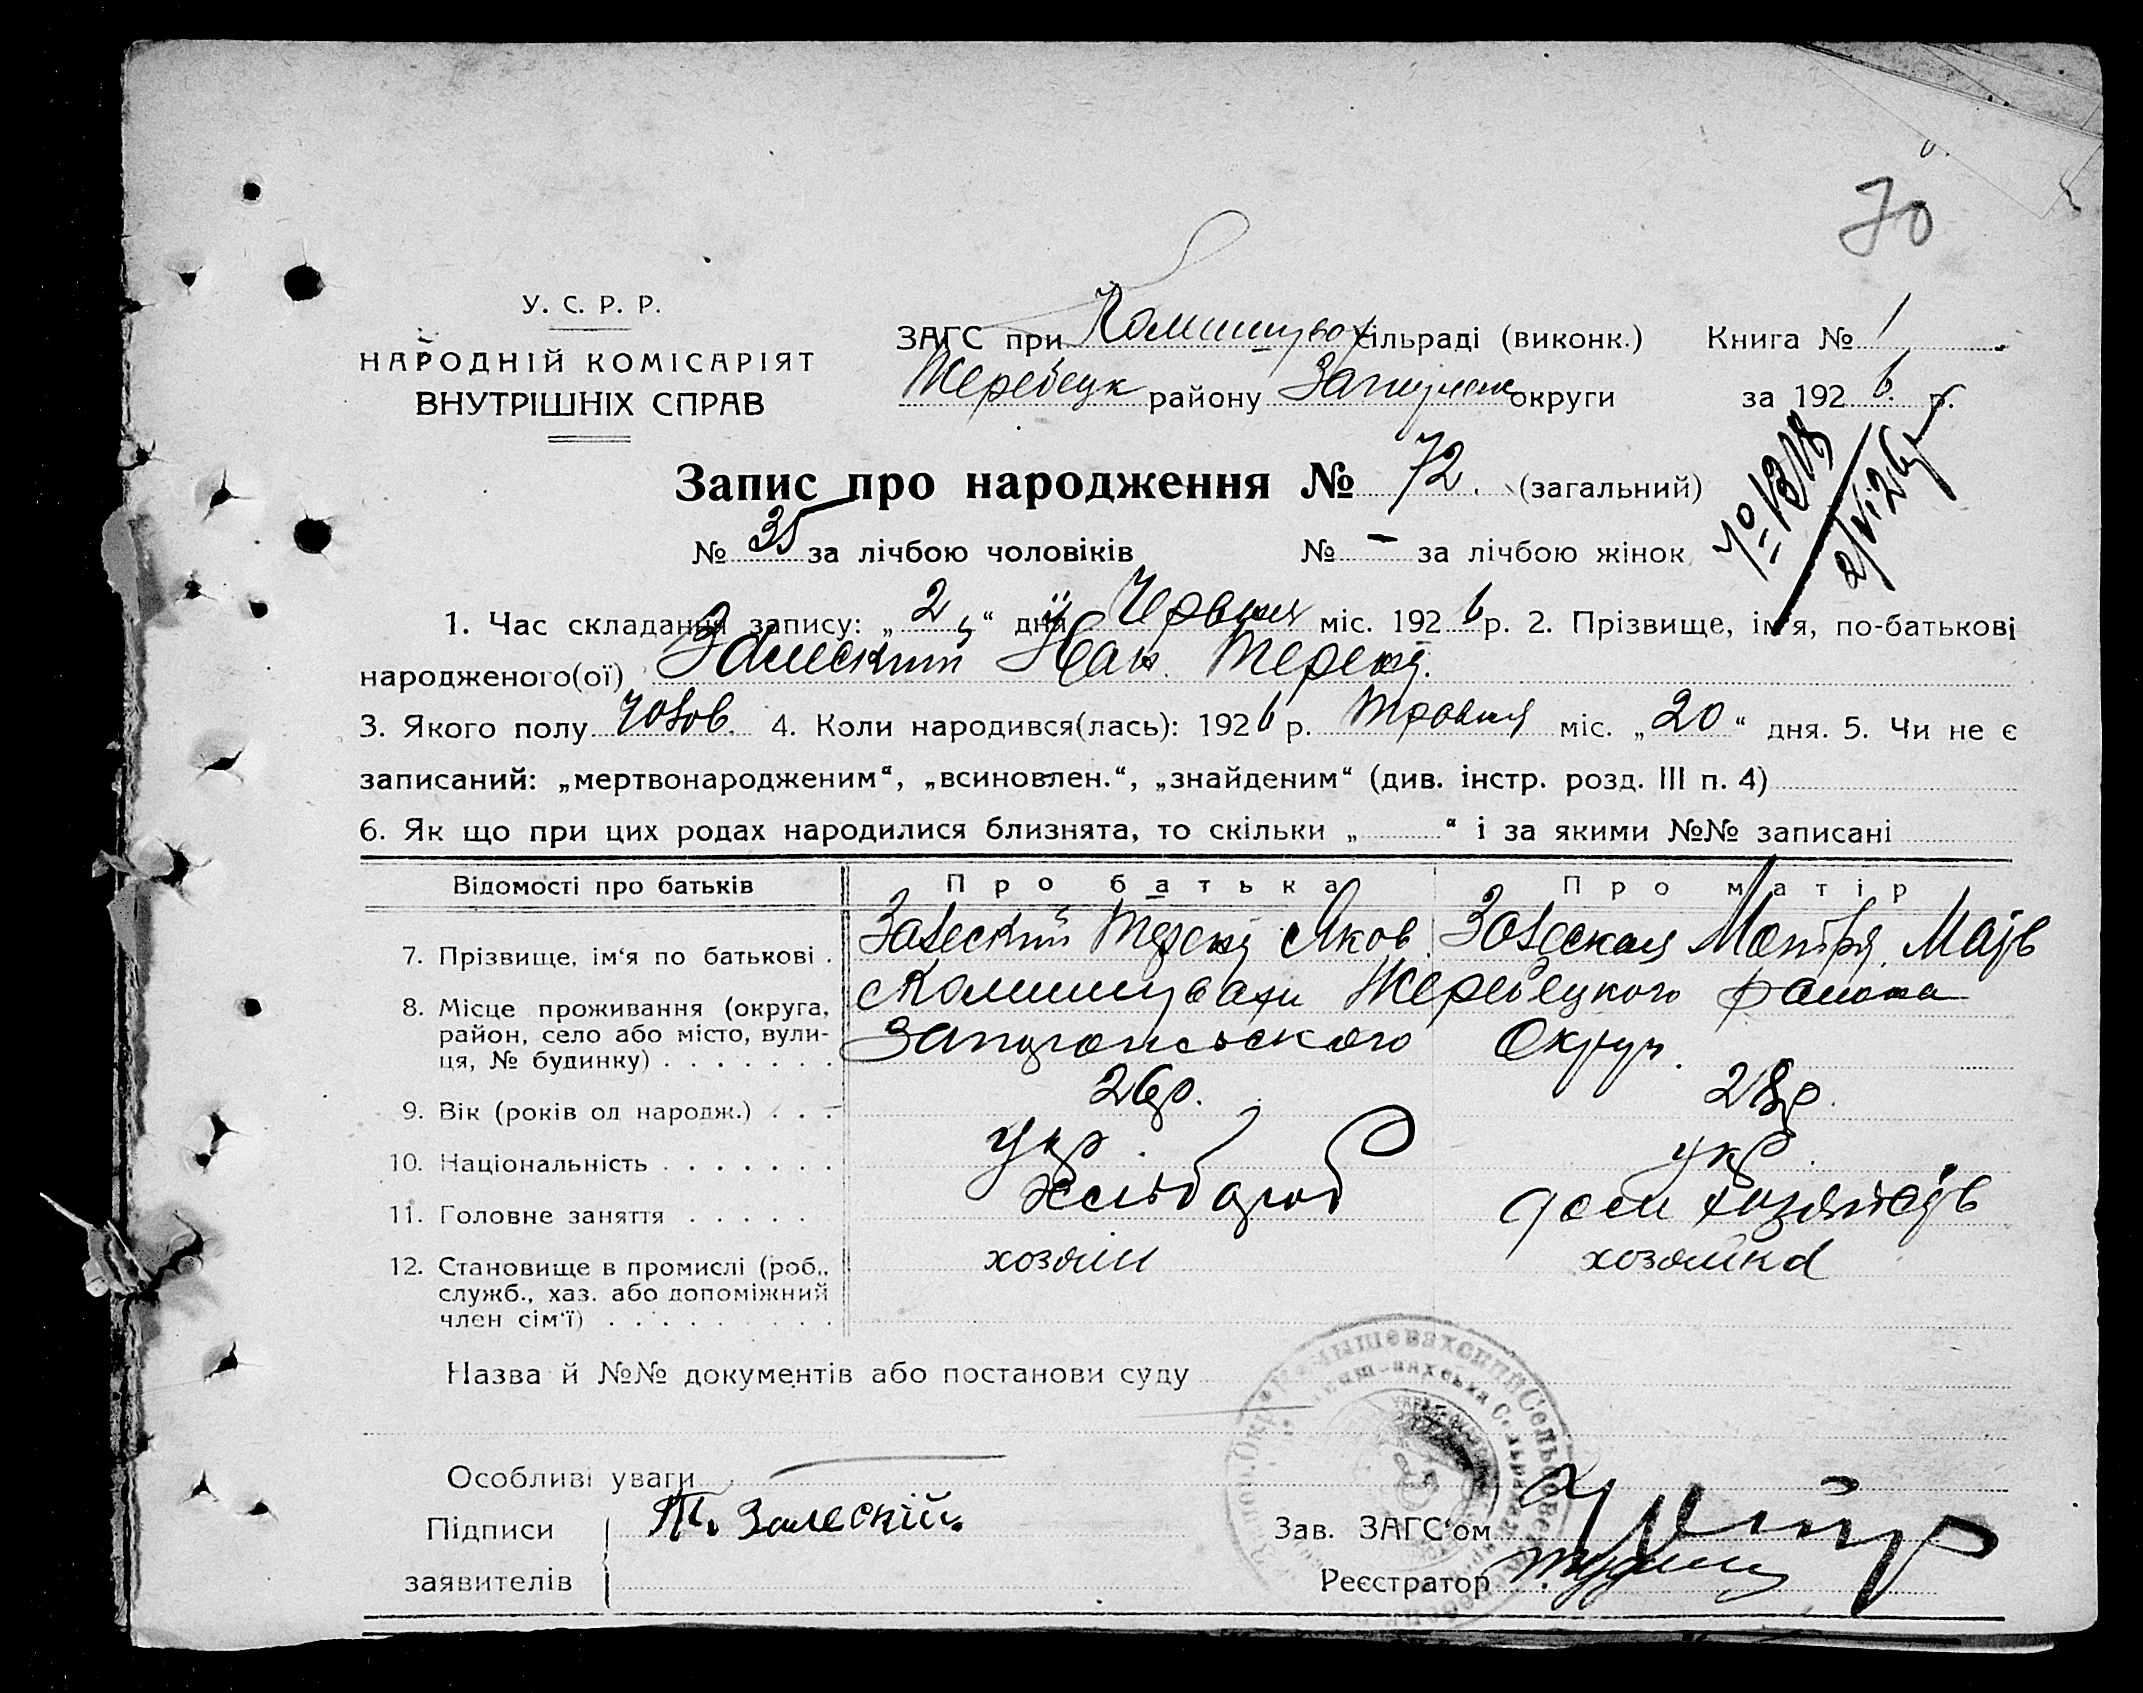 70
У. С. Р. Р.
НАРОДНІЙ КОМІСАРІЯТ
ВНУТРІШНІХ СПРАВ
ЗАГС при Комишув сільраді (виконк.) Книга № 1
Жеребецк району округи за 1926 р.
Запис про народження № 72. (загальний)
№ 35 за лічбою чоловіків № - за лічбою жінок
1. Час складання запису: „2“ дня Червня міс. 1926 р. 2. Прізвище, ім'я, по-батькові
народженого(ої) Залеский Іван Терент.
3. Якого полу чолов. 4. Коли народився(лась): 1926 р. Травня міс. „20“ дня. 5. Чи не є
записаний: „мертвонародженим“, „всиновлен.“, „знайденим“ (див. інстр. розд. III п. 4)
6. Як що при цих родах народилися близнята, то скільки „ “ і за якими №№ записані
Відомості про батьків Про батька Про матір
7. Прізвище, ім'я по батькові . Залеский Яков. Залеская Мотря
8. Місце проживання (округа, район, село або місто, вули- ця, № будинку) . . . . . . . Жеребецкого района
Запорожського Округи.
9. Вік (років од народж.) . . . 26 р. 28 р.
10. Національність . . . . . . . укр. укр.
11. Головне заняття . . . . . хлібороб дом
12. Становище в промислі (роб., служб., хаз. або допоміжний член сім'ї) . . . . . . . . . хозяїн хозяйка
Назва й №№ документів або постанови суду
Особливі уваги
Підписи Т. Залескій
Зав. ЗАГС'ом
заявителів Реєстратор